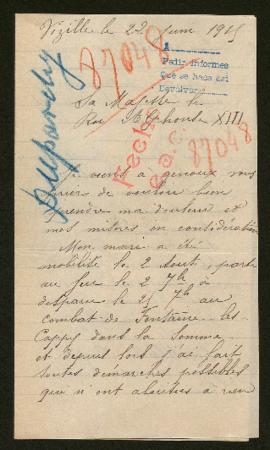 Vizille le 22 Juin 1915
87048
1
Pedir informes
Que se haga así
Devolver
Sa Majesté le
Roi Alphonse XIII
87048
Je viens à genoux vous
prier de vouloir bien
prendre ma douleur et
mes misères en considération
Mon mari a été
mobilisé le 2 Août, parti
au feu le 2 7b à
disparu le 25 7b au
combat de Fontaine les
Cappy dans la Somme
et depuis lors j'ai fait
toutes démarches possibles
qui n'ont abouties à rien